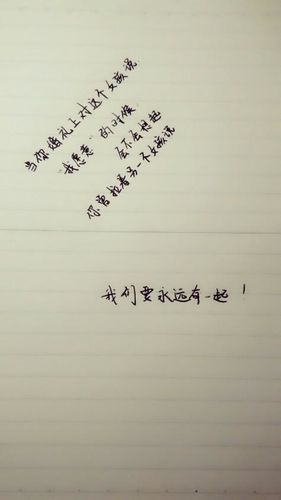 当你婚礼上对这个女孩说
“我愿意”的时候
会不会想起
你曾抱着另一个女孩说
我们要永远在一起!